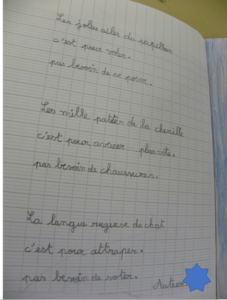 Les jolies ailes du papillon
c'est pour voler.
pas besoin de se poser.
Les mille pattes de la chenille
c'est pour avancer plus vite.
pas besoin de chaussures.
La langue rugueuse de chat
c'est pour attraper.
pas besoin de
Auteur